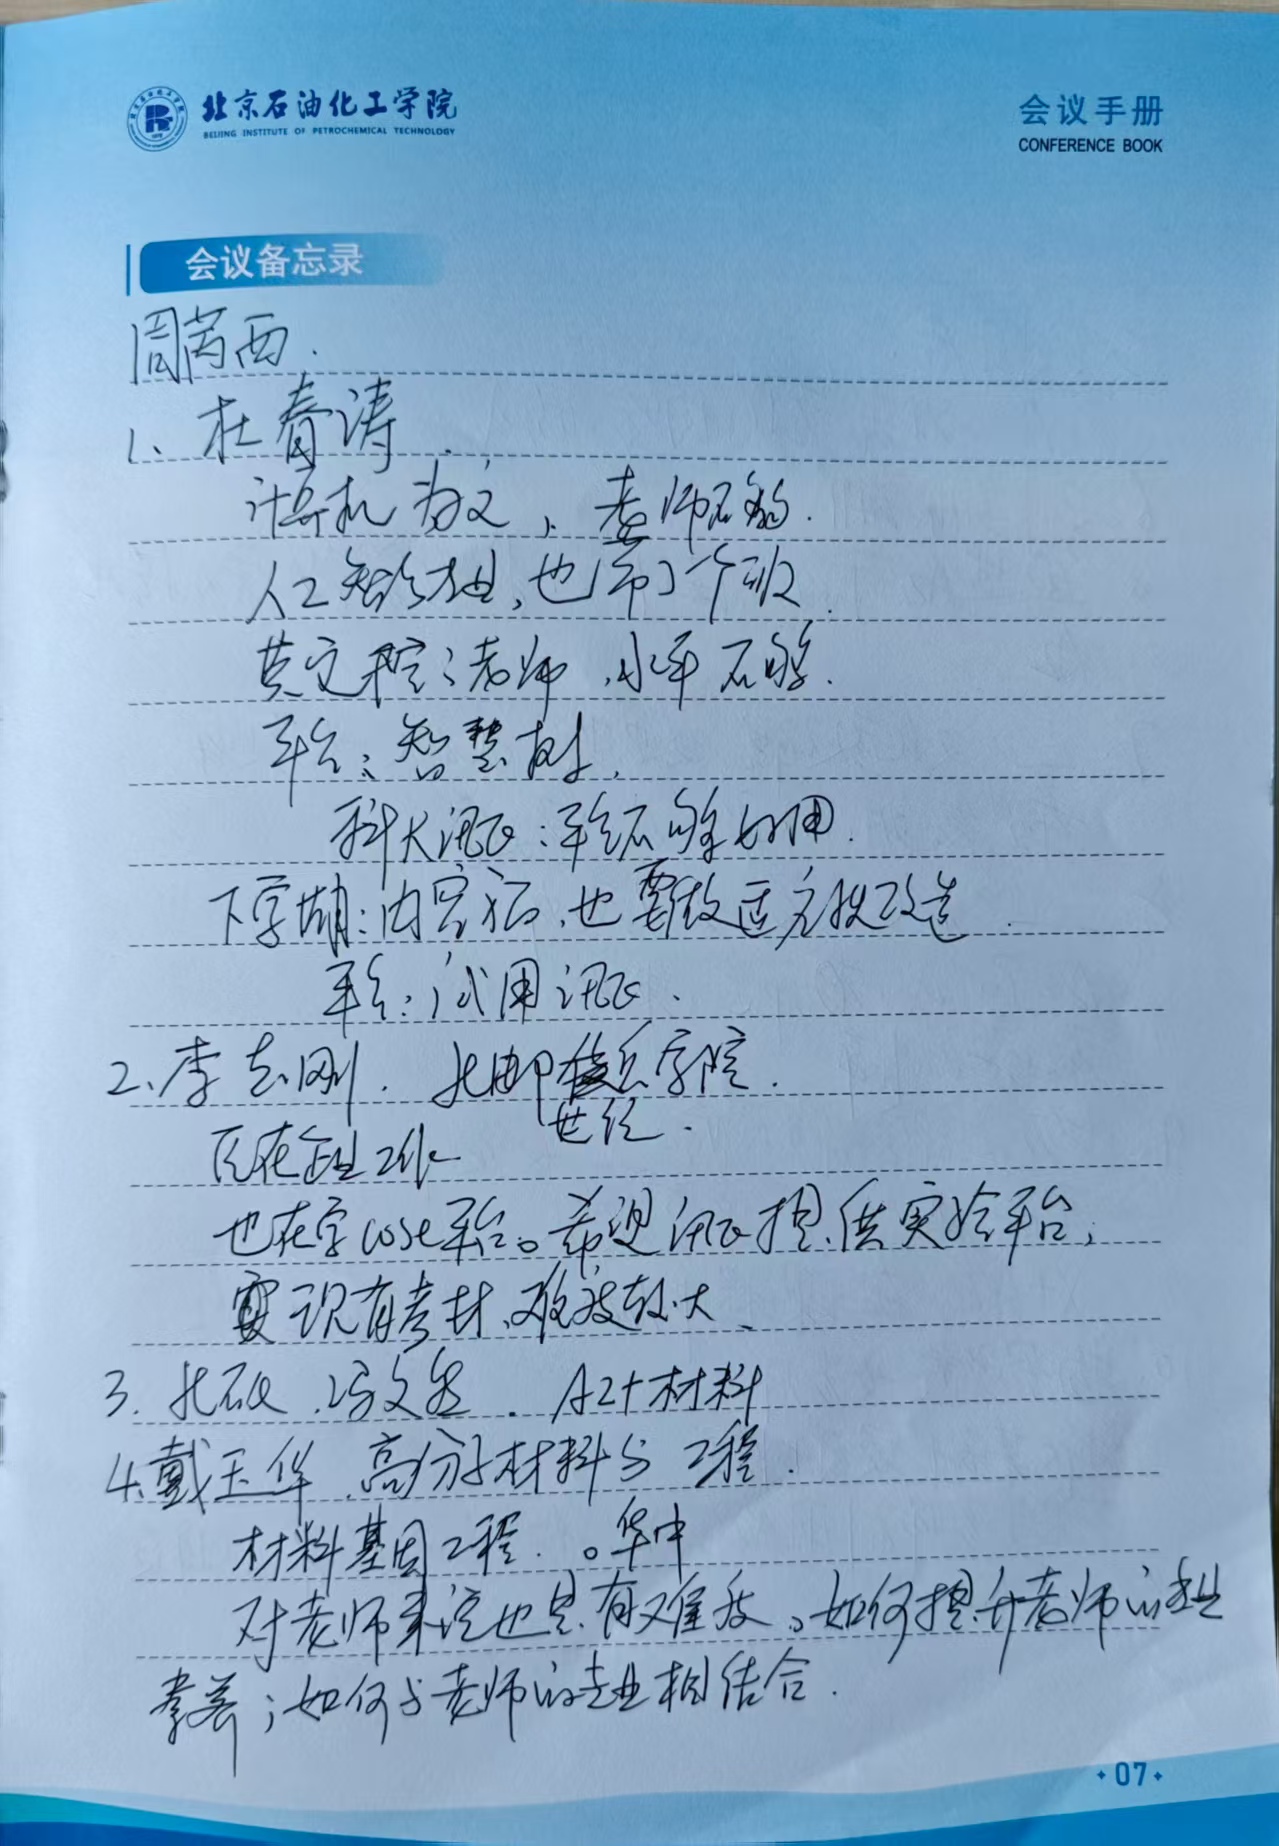 北京石油化工学院
BEIJING INSTITUTE OF PETROCHEMICAL TECHNOLOGY
会议手册
CONFERENCE BOOK
会议备忘录
周芮西.
1、杜春涛.
计算机 为文、老师不够.
人工智能, 也带了个班.
英文 老师,水平不够.
平台:智慧树,
科大讯飞:平台不够好用.
下学期:内容 ,也要做适应性改造.
平台:试用讯飞.
2、李志刚. 北邮 学院.
世纪.
工作
也在学 平台。希望讯飞提供实验平台,
要现有教材,难度较大、
3. 北石化.冯文然. AI+材料
4.戴玉华.高分子材料与工程.
材料基因工程.。华中
对老师来说也是有难度。如何提升老师的
素养;如何与老师的专业相结合.
07